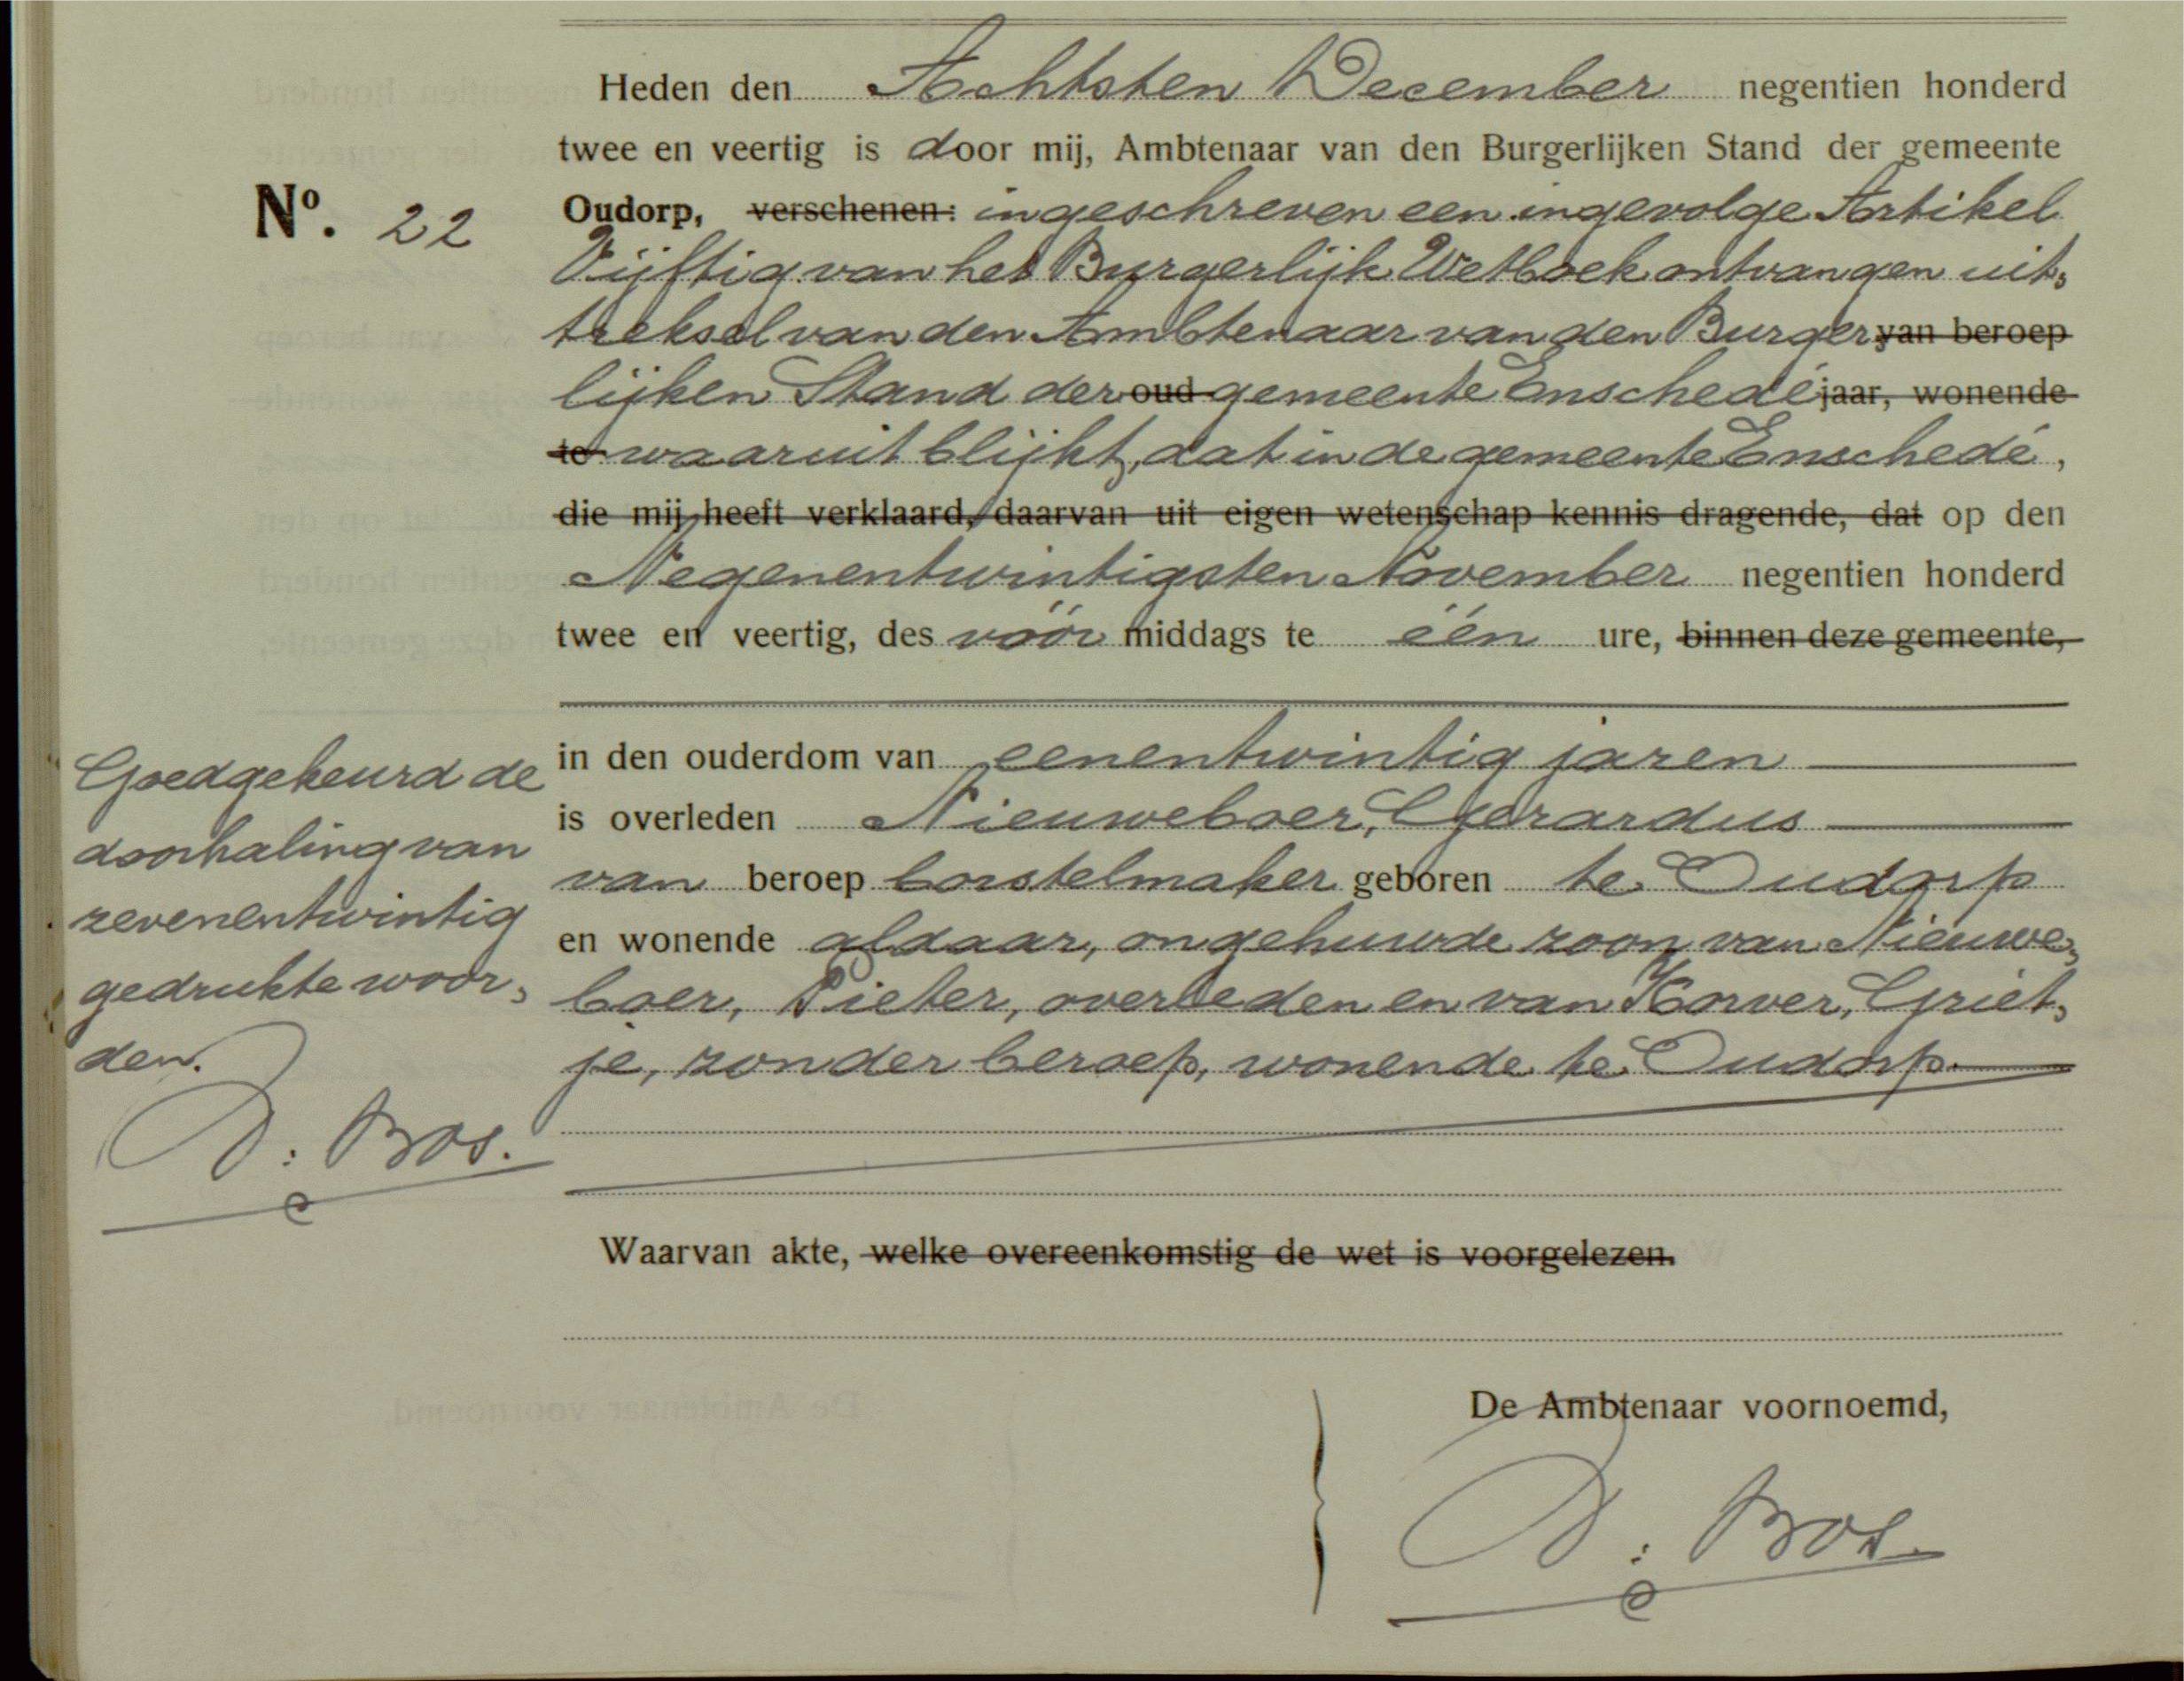 Heden den Achtsten December negentien honderd
twee en veertig is door mij, Ambtenaar van den Burgerlijken Stand der gemeente
No. 22
Oudorp, verschenen: ingeschreven een ingevolge Artikel
Vijftig van het Burgerlijk Wetboek ontvangen uit„
treksel van den Ambtenaar van den Burger van beroep
lijken Stand der oud gemeente Enschedé jaar, wonende
te waaruit blijkt, dat in de gemeente Enschedé,
die mij heeft verklaard, daarvan uit eigen wetenschap kennis dragende, dat op den
Negenentwintigsten November negentien honderd
twee en veertig, des vóór middags te één ure, binnen deze gemeente,
in den ouderdom van eenentwintig jaren
is overleden Nieuweboer, Gerardus
van beroep borstelmaker geboren te Oudorp
en wonende aldaar, ongehuwde zoon van Nieuwe„
boer, Pieter, overleden en van Korver, Griet„
je, zonder beroep, wonende te Oudorp.
Goedgekeurd de
doorhaling van
zevenentwintig
gedrukte woor„
den.
D: Bos.
Waarvan akte, welke overeenkomstig de wet is voorgelezen.
De Ambtenaar voornoemd,
D: Bos.